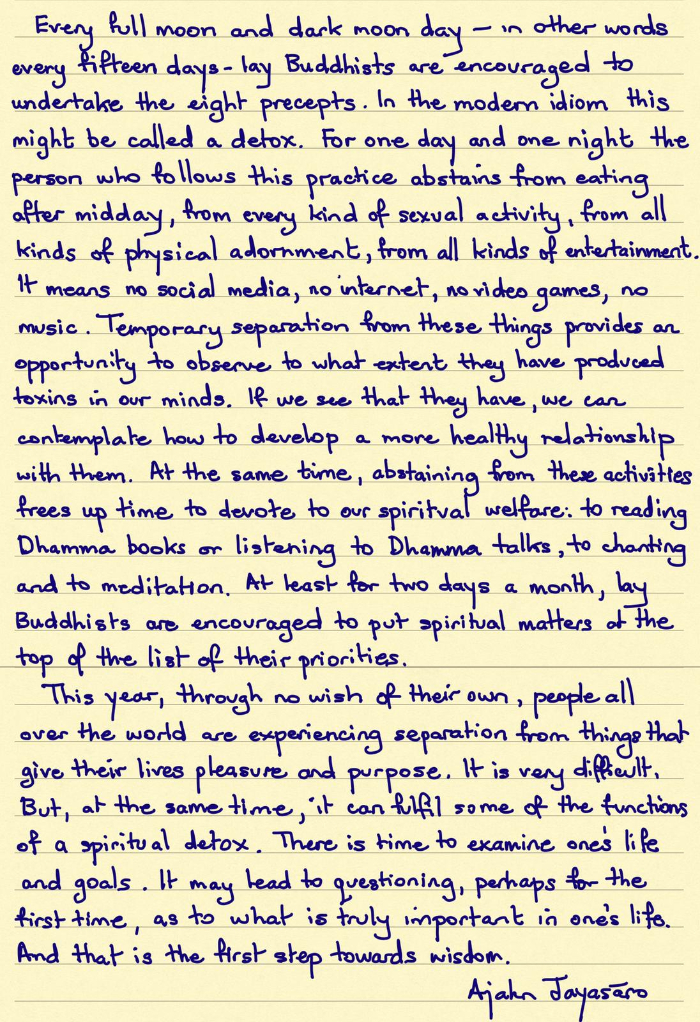 Every full moon and dark moon day – in other words
every fifteen days - lay Buddhists are encouraged to
undertake the eight precepts. In the modern idiom this
might be called a detox. For one day and one night the
person who follows this practice abstains from eating
after midday, from every kind of sexual activity, from all
kinds of physical adornment, from all kinds of entertainment.
It means no social media, no internet, no video games, no
music. Temporary separation from these things provides an
opportunity to observe to what extent they have produced
toxins in our minds. If we see that they have, we can
contemplate how to develop a more healthy relationship
with them. At the same time, abstaining from these activities
frees up time to devote to our spiritual welfare: to reading
Dhamma books or listening to Dhamma talks, to chanting
and to meditation. At least for two days a month, lay
Buddhists are encouraged to put spiritual matters at the
top of the list of their priorities.
This year, through no wish of their own, people all
over the world are experiencing separation from things that
give their lives pleasure and purpose. It is very difficult.
But, at the same time, it can fulfil some of the functions
of a spiritual detox. There is time to examine one's life
and goals. It may lead to questioning, perhaps for the
first time, as to what is truly important in one's life.
And that is the first step towards wisdom.
Ajahn Jayasāro